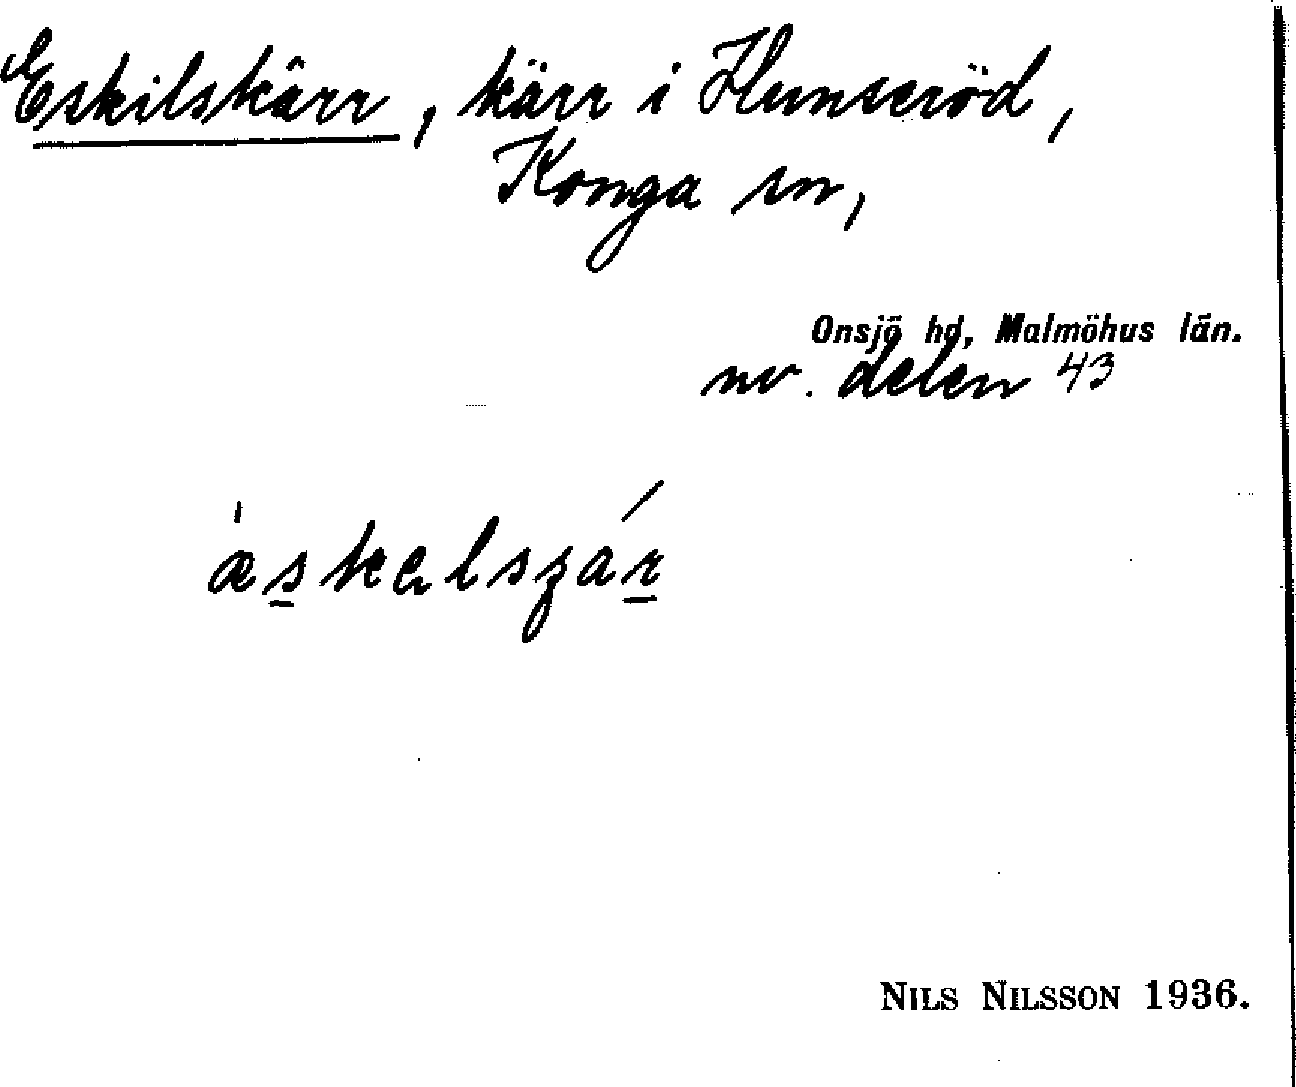 Eskilskärr, kärr i Hunseröd,
Konga sn,
Onsjö hd, Malmöhus län.
nv. delen 43
NILS NILSSON 1936.